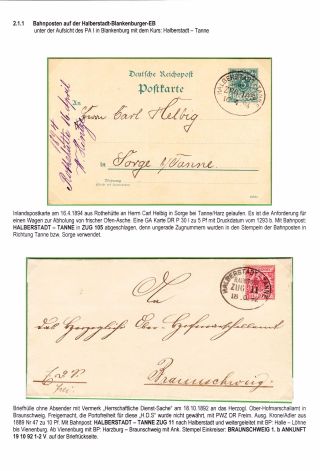 2.1.1 Bahnposten auf der Halberstadt-Blankenburger-EB
unter der Aufsicht des PA I in Blankenburg mit dem Kurs: Halberstadt – Tanne
Deutsche Reichspost
Postkarte
HALBERSTADT
ZUG 105
16 4
Herrn Carl Helbig
in Sorge bei Tanne/
Rothehütte 16 April
Inlandspostkarte am 16.4.1894 aus Rothehütte an Herrn Carl Helbig in Sorge bei Tanne/Harz gelaufen. Es ist die Anforderung für
einen Wagen zur Abholung von frischer Ofen-Asche. Eine GA Karte DR P 30 I zu 5 Pf mit Druckdatum vom 1293 b. Mit Bahnpost
HALBERSTADT – TANNE in ZUG 105 abgeschlagen, denn ungerade Zugnummern wurden in den Stempeln der Bahnposten in
Richtung Tanne bzw. Sorge verwendet.
HALBERSTADT
ZUG 11
18
An
das Herzogliche Ober-Hofmarschallamt
Braunschweig
frei
Briefhülle ohne Absender mit Vermerk „Herrschaftliche Dienst-Sache" am 18.10.1892 an das Herzogl. Ober-Hofmarschallamt in
Braunschweig, Freigemacht, die Portofreiheit für diese „H.D.S" wurde nicht gewährt, mit PWZ DR Freim. Ausg. Krone/Adler aus
1889 Nr 47 zu 10 Pf. Mit Bahnpost: HALBERSTADT – TANNE ZUG 11 nach Halberstadt und weitergeleitet mit BP: Halle – Löhne
bis Vienenburg. Ab Vienenburg mit BP: Harzburg – Braunschweig mit Ank. Stempel Einkreiser: BRAUNSCHWEIG 1. b ANKUNFT
19 10 92 1-2 V. auf der Briefrückseite.